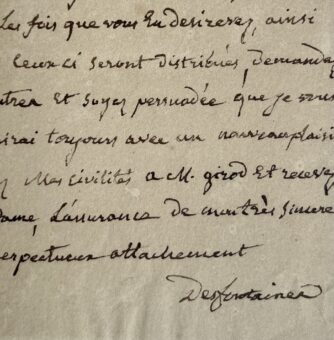 Les fois que vous En desirerez, ainsi
Ceux ci seront distribués, demandez
utres Et soyez persuadée que je vous
irai toujours avec un nouveau plaisi
Mes civilités a M. girod Et recevez
ame, L'assurance de mon très sincere
espectueux attachement
Desfontaines